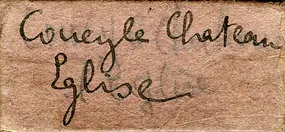 Coucy le Chateau
Eglise